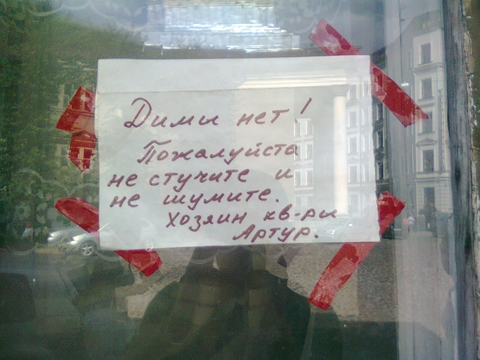 Димы нет!
Пожалуйста
не стучите и
не шумите.
Хозяин кв-ры
Артур.